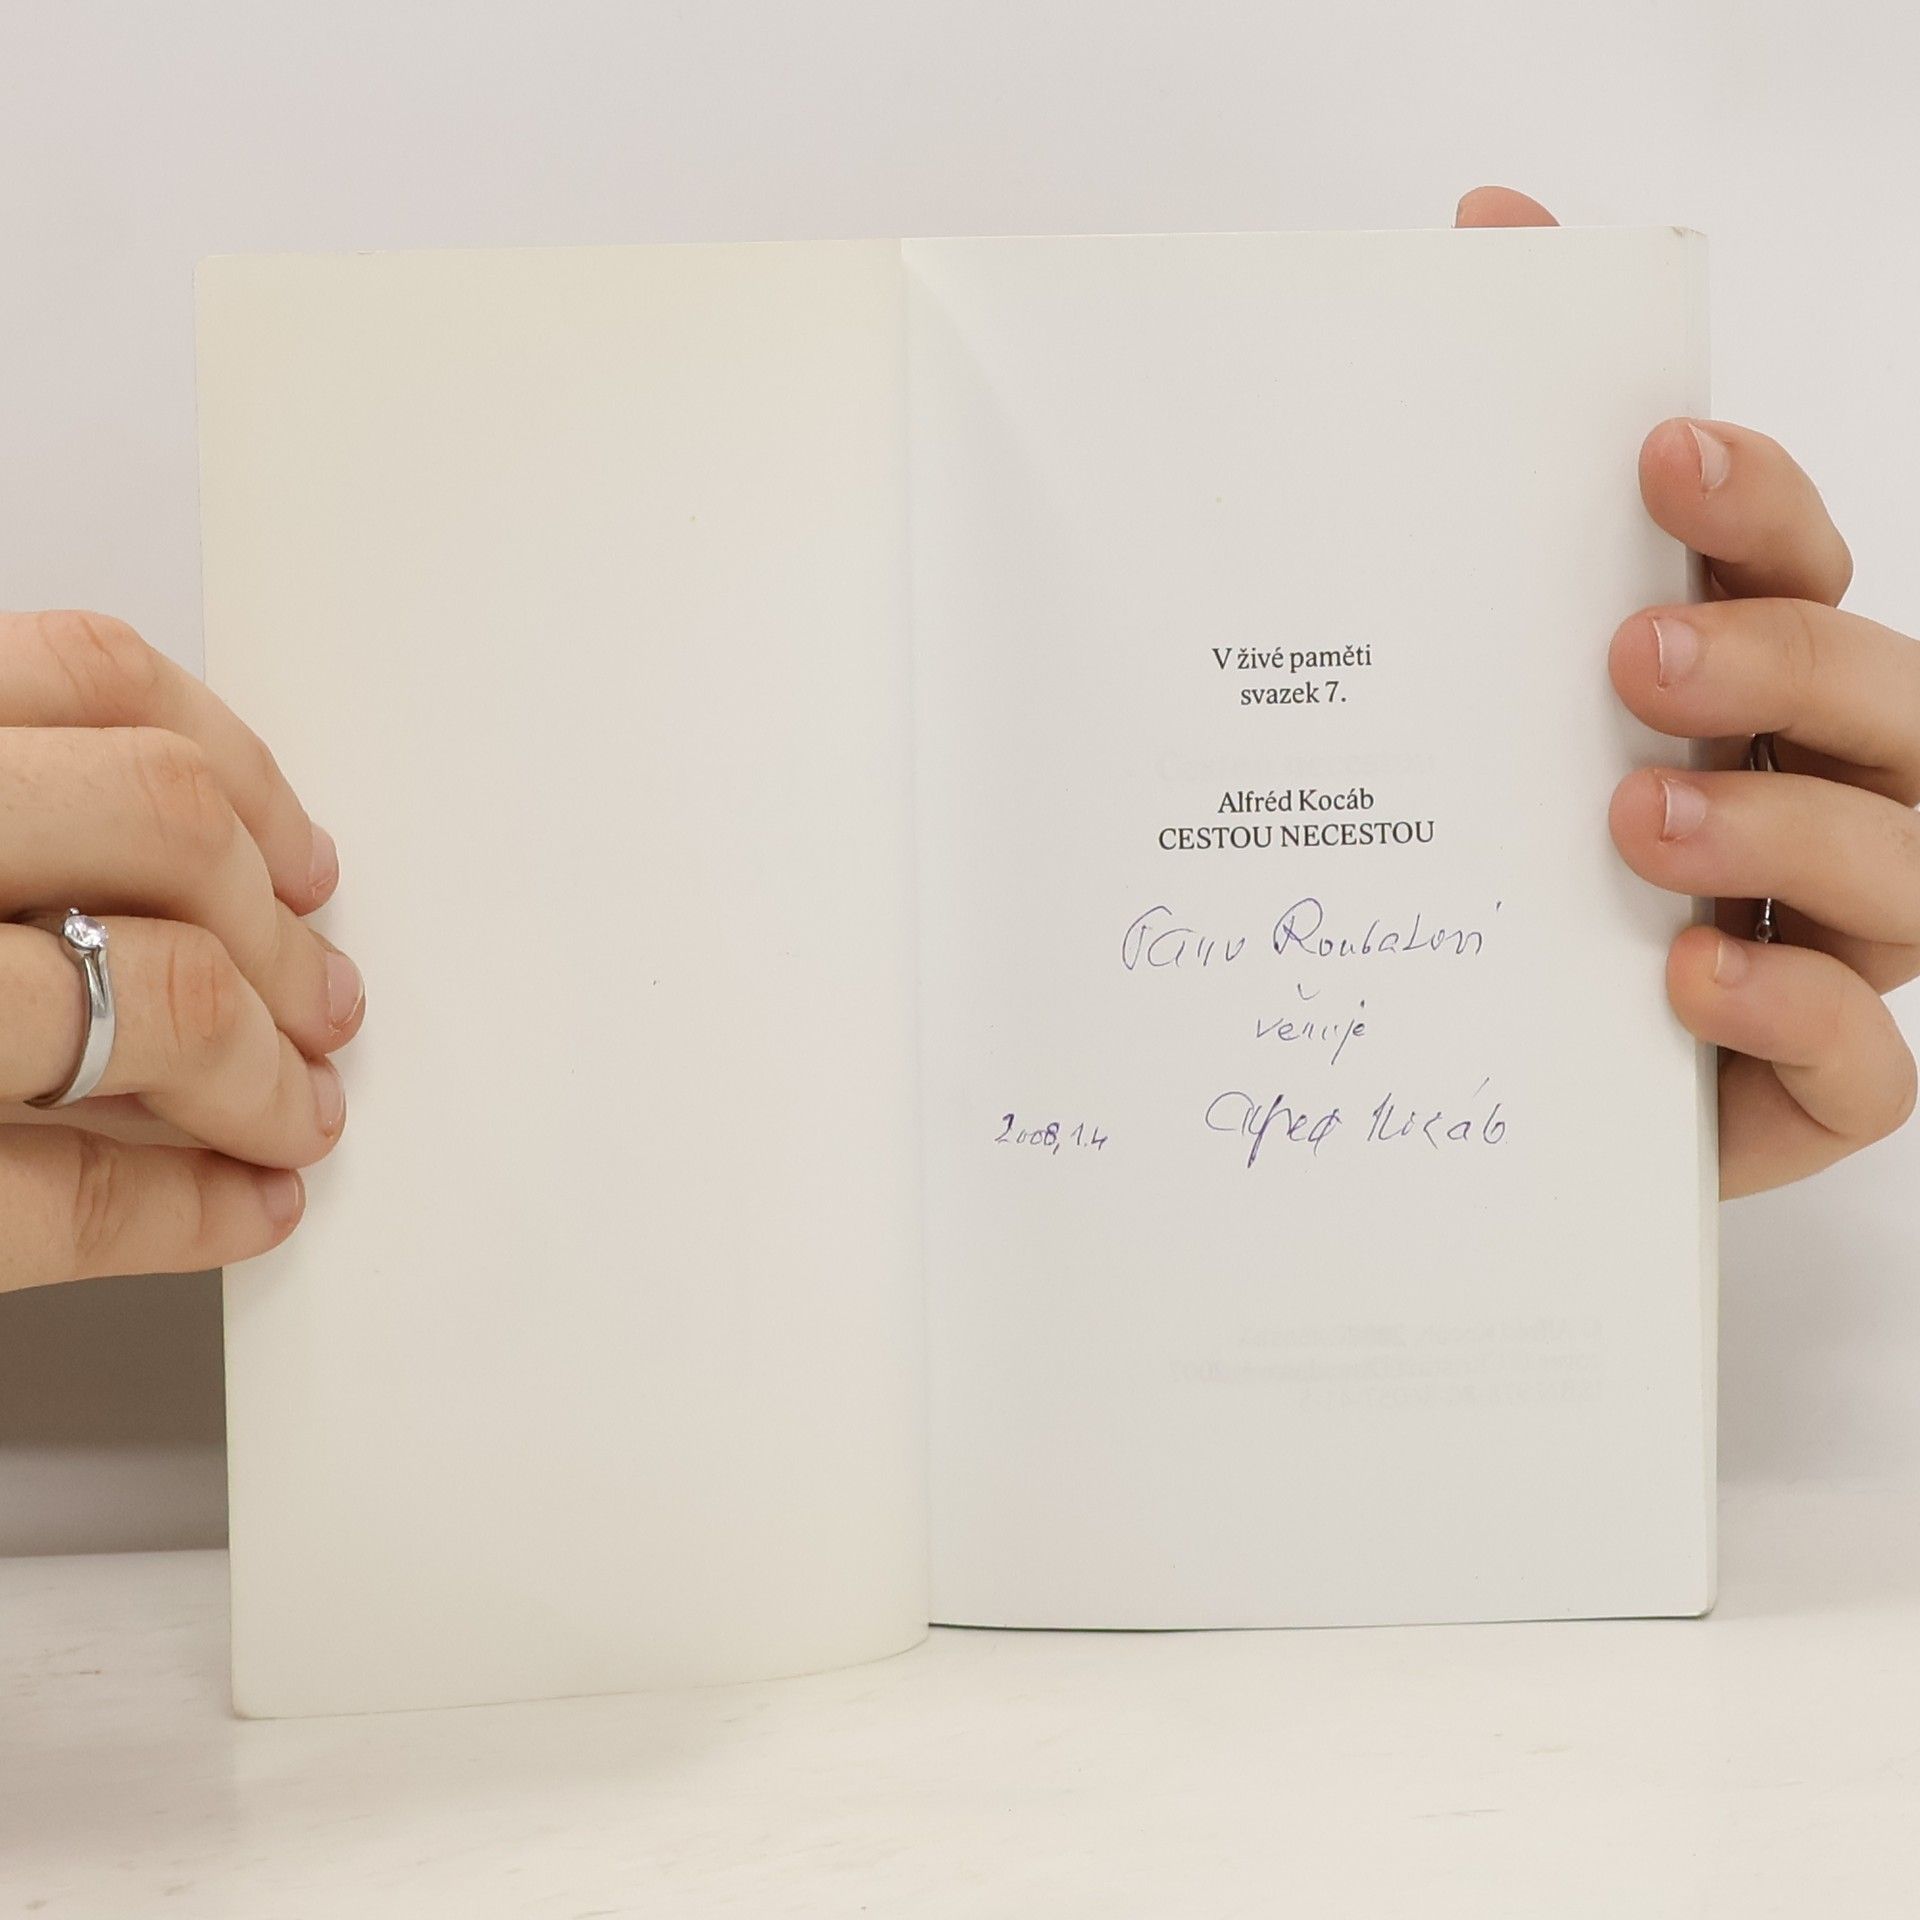 V živé paměti
svazek 7.
Alfréd Kocáb
CESTOU NECESTOU
Panu Roubalovi
věnuje
2008, 1.4
Alfréd Kocáb